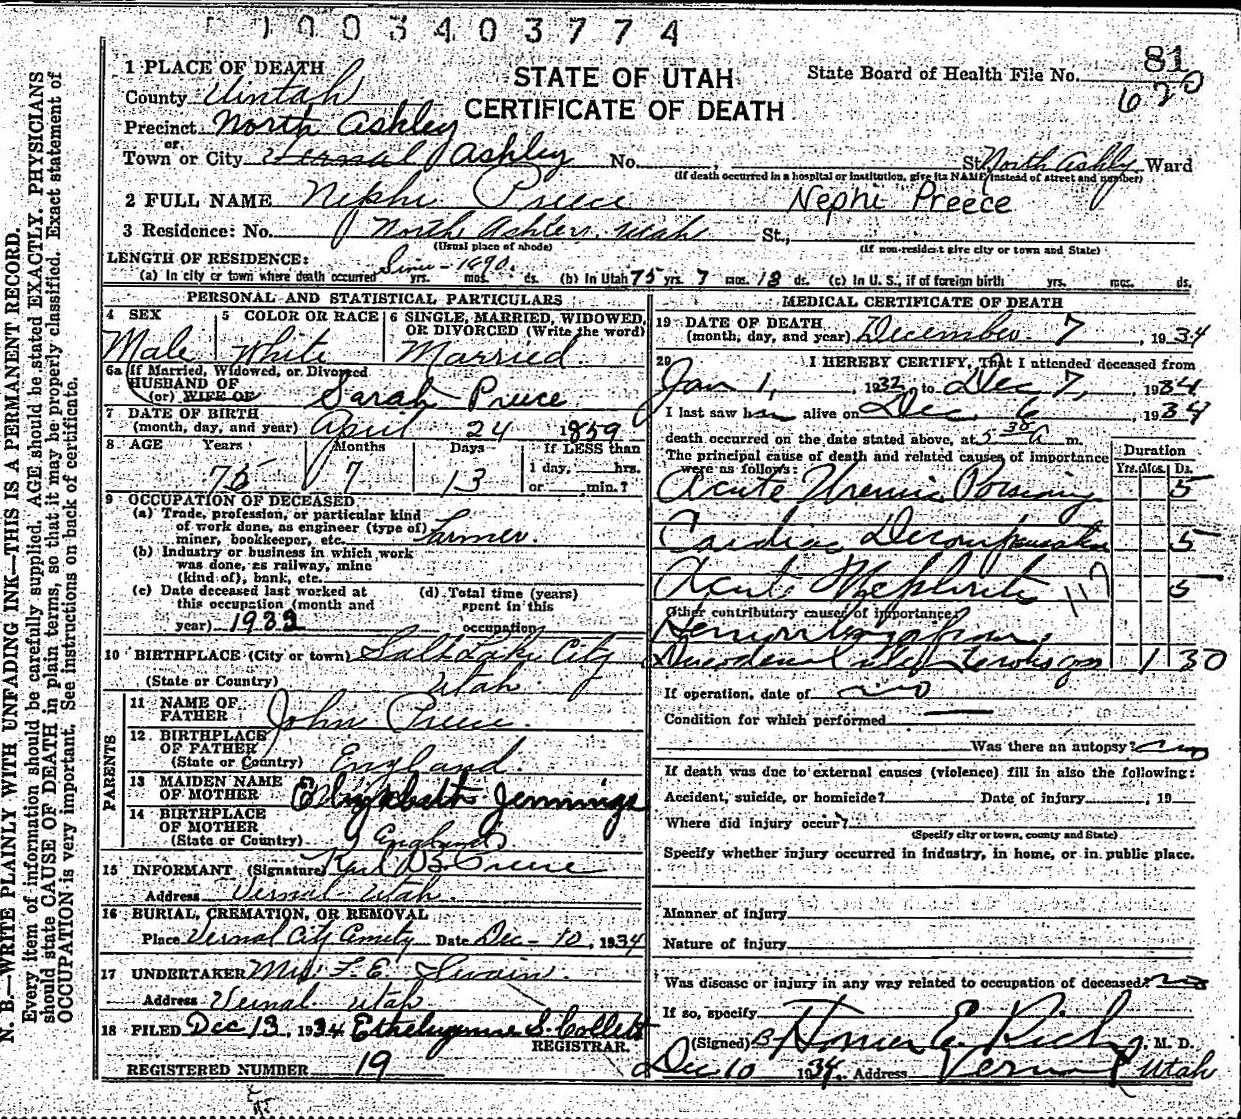 1003403774
81
STATE OF UTAH
CERTIFICATE OF DEATH
State Board of Health File No. 620
1 PLACE OF DEATH
County Uintah
Precinct North Ashley
or
Town or City Vernal Ashley No. , St. North Ashley Ward
(If death occurred in a hospital or institution, give its NAME instead of street and number)
2 FULL NAME Nephi Preece Nephi Preece
3 Residence: No. North Ashley, Utah St.,
(Usual place of abode) (If non-resident give city or town and State)
LENGTH OF RESIDENCE:
(a) In city or town where death occurred Since - 1890. yrs. mos. ds. (b) In Utah 75 yrs. 7 mos. 13 ds. (c) In U. S., if of foreign birth yrs. mos. ds.
PERSONAL AND STATISTICAL PARTICULARS
4 SEX Male
5 COLOR OR RACE White
6 SINGLE, MARRIED, WIDOWED, OR DIVORCED (Write the word) Married
6a If Married, Widowed, or Divorced
HUSBAND OF
(or) WIFE OF Sarah Preece
7 DATE OF BIRTH
(month, day, and year) April 24 1859
8 AGE Years 75 Months 7 Days 13 If LESS than
1 day, hrs.
or min.?
9 OCCUPATION OF DECEASED
(a) Trade, profession, or particular kind
of work done, as engineer (type of)
miner, bookkeeper, etc. Farmer.
(b) Industry or business in which work
was done, as railway, mine
(kind of), bank, etc.
(c) Date deceased last worked at
this occupation (month and
year) 1932
(d) Total time (years)
spent in this
occupation
10 BIRTHPLACE (City or town) Salt Lake City
(State or Country) Utah
PARENTS
11 NAME OF
FATHER John Preece
12. BIRTHPLACE
OF FATHER
(State or Country) England
13 MAIDEN NAME
OF MOTHER Elizabeth Jennings
14 BIRTHPLACE
OF MOTHER
(State or Country) England
15 INFORMANT (Signature) Karl B. Preece
Address Vernal Utah.
16 BURIAL, CREMATION, OR REMOVAL
Place Vernal City Date Dec - 10, 1934
17 UNDERTAKER Mrs. F. E. Swain.
Address Vernal Utah
18 FILED Dec 13, 1934 S. Collett
REGISTRAR.
REGISTERED NUMBER 19
MEDICAL CERTIFICATE OF DEATH
19 DATE OF DEATH
(month, day, and year) December 7, 1934
20 I HEREBY CERTIFY, That I attended deceased from
Jan 1, 1932, to Dec 7, 1934
I last saw him alive on Dec 6, 1934
death occurred on the date stated above, at 5 30 A m.
The principal cause of death and related causes of importance
were as follows:
Duration
Yrs. Mos. Ds.
Acute Uremic Poisoning 5
Cardiac Decompensation 5
Acute Nephritis 117 5
Other contributory causes of importance:
Hemorrhage from
Duodenal ulcer 1 30
If operation, date of no
Condition for which performed
Was there an autopsy? no
If death was due to external causes (violence) fill in also the following:
Accident, suicide, or homicide? Date of injury , 19
Where did injury occur?
(Specify city or town, county and State)
Specify whether injury occurred in industry, in home, or in public place.
Manner of injury
Nature of injury
Was disease or injury in any way related to occupation of deceased? no
If so, specify
(Signed) Homer E. Rich, M. D.
Dec 10 1934. Address Vernal Utah
N. B.—WRITE PLAINLY WITH UNFADING INK—THIS IS A PERMANENT RECORD.
Every item of information should be carefully supplied. AGE should be stated EXACTLY. PHYSICIANS
should state CAUSE OF DEATH in plain terms, so that it may be properly classified. Exact statement of
OCCUPATION is very important. See instructions on back of certificate.